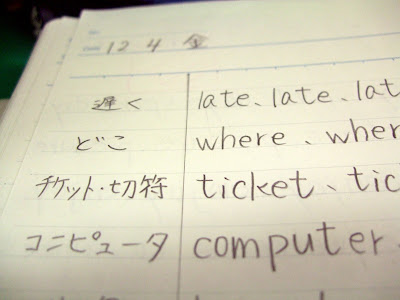 12 4 金
遅く late、late、lat
どこ where、wher
チケット・切符 ticket、tic
コニピュータ computer